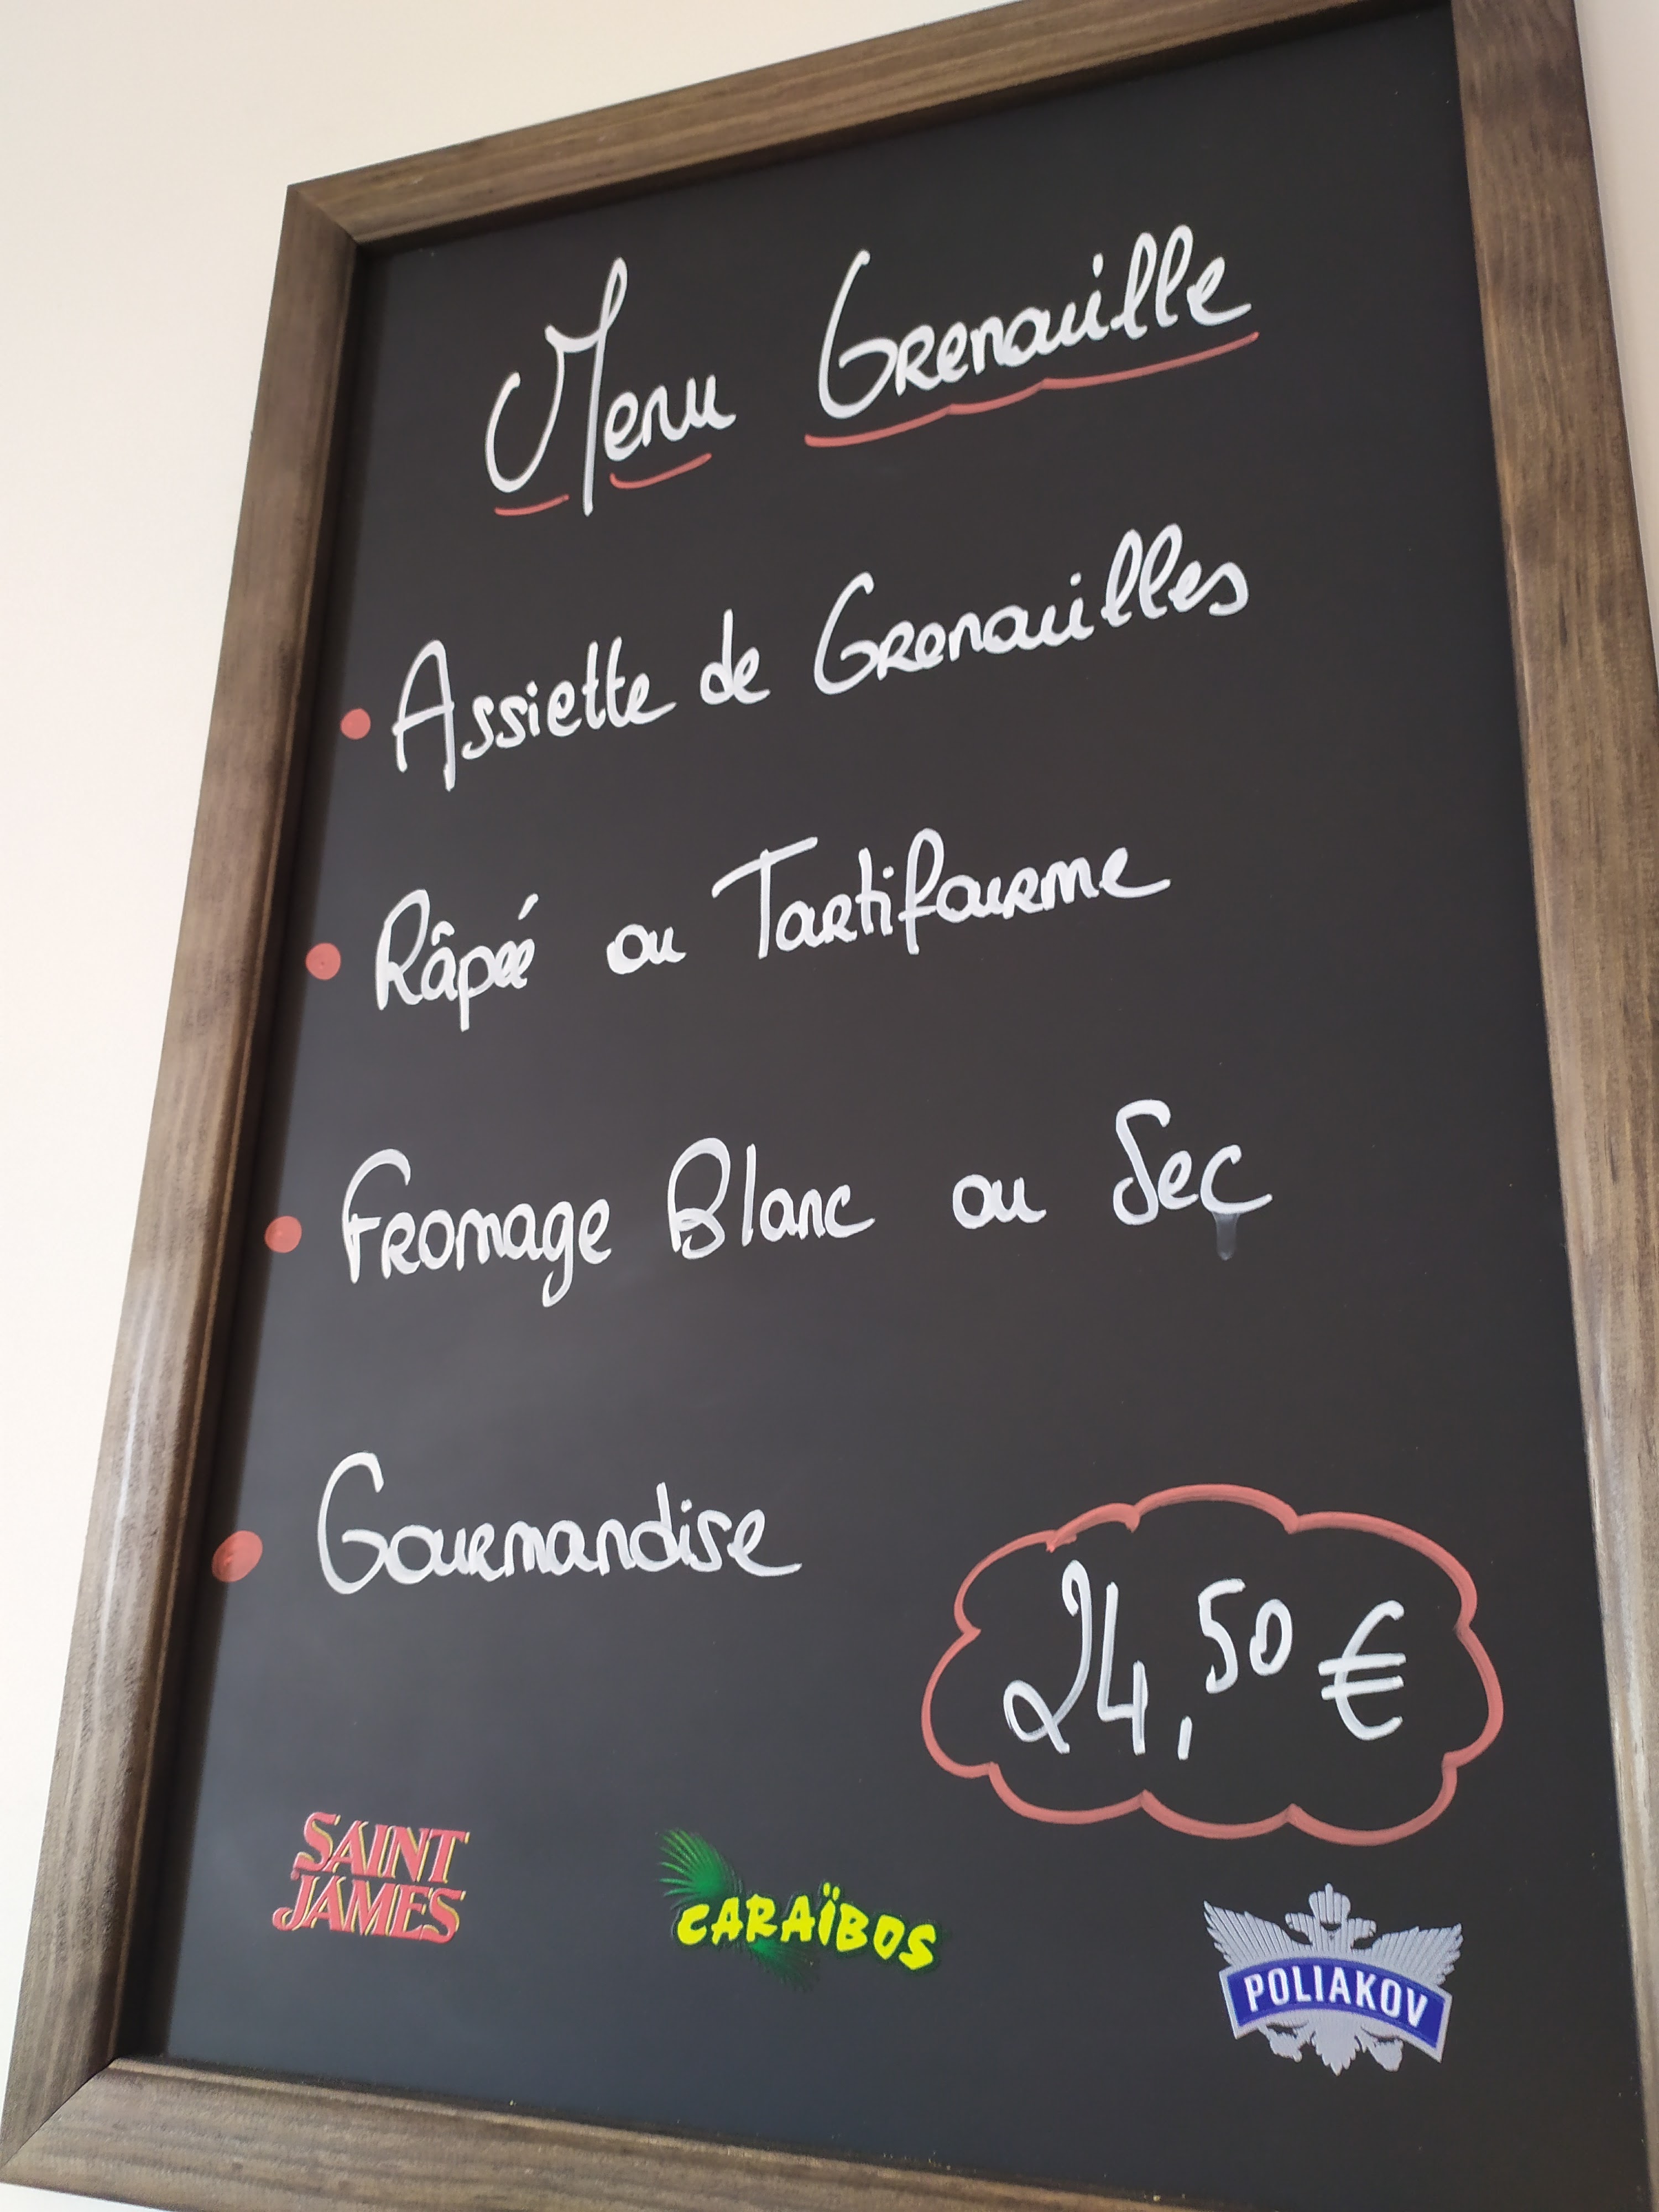 Menu Grenouille
Assiette de Grenouilles
Râpée ou Tartifourme
Fromage Blanc ou Sec
Gourmandise
24,50 €
SAINT
JAMES
CARAÏBOS
POLIAKOV